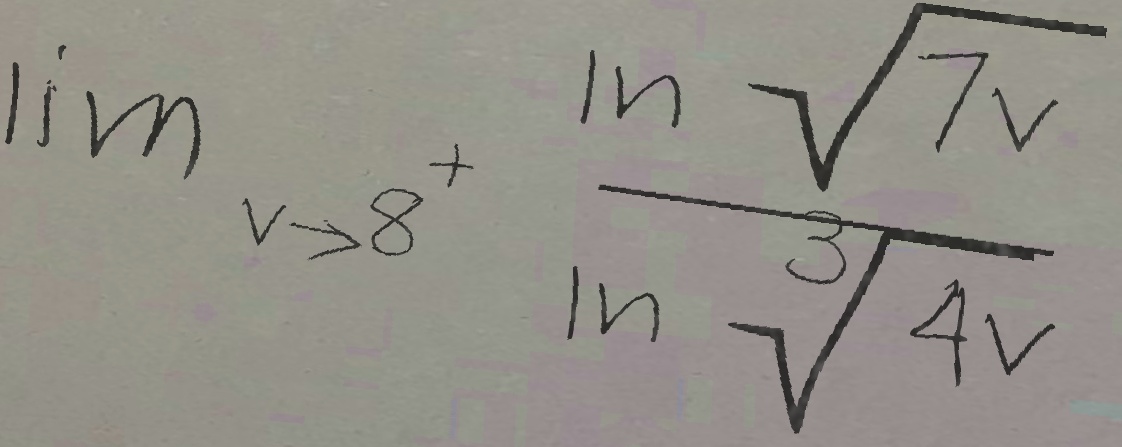 \lim_{v \to 8^+} \frac{\ln \sqrt{7v}}{\ln \sqrt[3]{4v}}